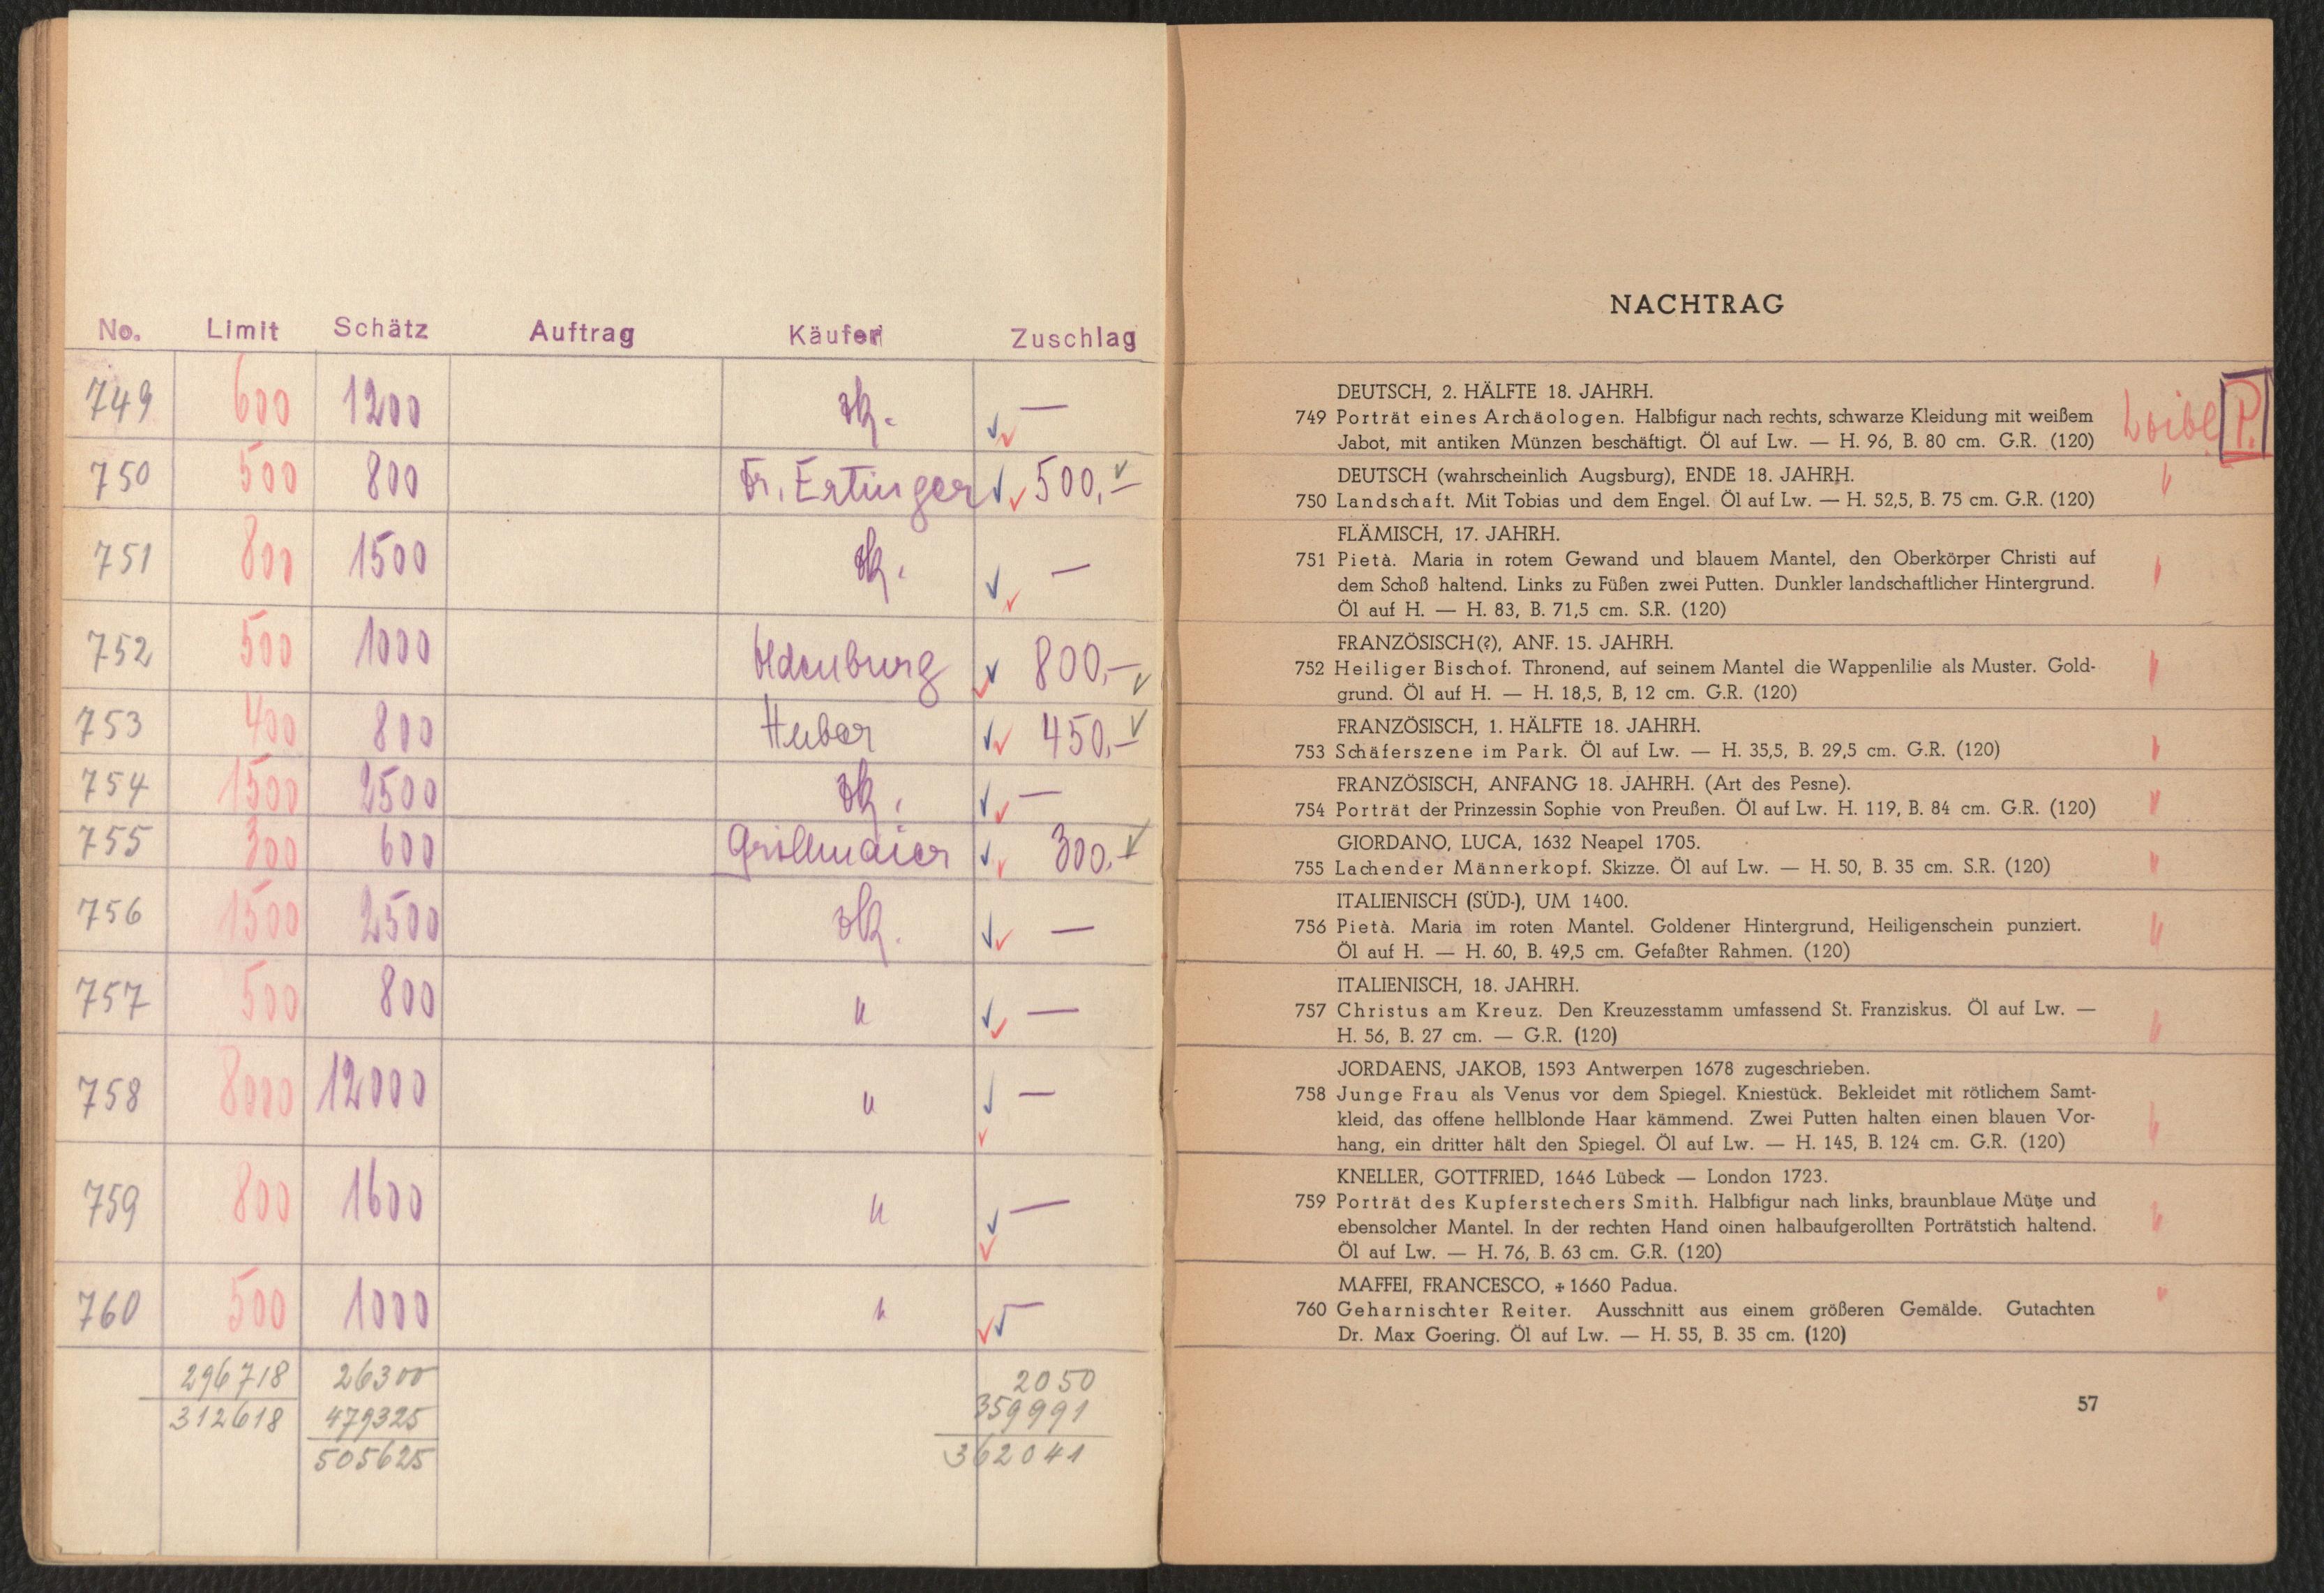 No. Limit Schätz Auftrag Käufer Zuschlag
749 600 1200 —
750 500 800 Fr. Ertinger 500,—
751 800 1500 —
752 500 1000 Oldenburg 800,—
753 400 800 Huber 450,—
754 1500 2500 —
755 300 600 Grillmaier 300,—
756 1500 2500 —
757 500 800 " —
758 8000 12000 " —
759 800 1600 " —
760 500 1000 " —
296718 26300 2050
312618 479325 359991
505625 362041
NACHTRAG
DEUTSCH, 2. HÄLFTE 18. JAHRH.
749 Porträt eines Archäologen. Halbfigur nach rechts, schwarze Kleidung mit weißem
Jabot, mit antiken Münzen beschäftigt. Öl auf Lw. — H. 96, B. 80 cm. G.R. (120)
Loibl P.
DEUTSCH (wahrscheinlich Augsburg), ENDE 18. JAHRH.
750 Landschaft. Mit Tobias und dem Engel. Öl auf Lw. — H. 52,5, B. 75 cm. G.R. (120)
"
FLÄMISCH, 17. JAHRH.
751 Pietà. Maria in rotem Gewand und blauem Mantel, den Oberkörper Christi auf
dem Schoß haltend. Links zu Füßen zwei Putten. Dunkler landschaftlicher Hintergrund.
Öl auf H. — H. 83, B. 71,5 cm. S.R. (120)
"
FRANZÖSISCH(?), ANF. 15. JAHRH.
752 Heiliger Bischof. Thronend, auf seinem Mantel die Wappenlilie als Muster. Gold-
grund. Öl auf H. — H. 18,5, B, 12 cm. G.R. (120)
"
FRANZÖSISCH, 1. HÄLFTE 18. JAHRH.
753 Schäferszene im Park. Öl auf Lw. — H. 35,5, B. 29,5 cm. G.R. (120)
"
FRANZÖSISCH, ANFANG 18. JAHRH. (Art des Pesne).
754 Porträt der Prinzessin Sophie von Preußen. Öl auf Lw. H. 119, B. 84 cm. G.R. (120)
"
GIORDANO, LUCA, 1632 Neapel 1705.
755 Lachender Männerkopf. Skizze. Öl auf Lw. — H. 50, B. 35 cm. S.R. (120)
"
ITALIENISCH (SÜD-), UM 1400.
756 Pietà. Maria im roten Mantel. Goldener Hintergrund, Heiligenschein punziert.
Öl auf H. — H. 60, B. 49,5 cm. Gefaßter Rahmen. (120)
"
ITALIENISCH, 18. JAHRH.
757 Christus am Kreuz. Den Kreuzesstamm umfassend St. Franziskus. Öl auf Lw. —
H. 56, B. 27 cm. — G.R. (120)
"
JORDAENS, JAKOB, 1593 Antwerpen 1678 zugeschrieben.
758 Junge Frau als Venus vor dem Spiegel. Kniestück. Bekleidet mit rötlichem Samt-
kleid, das offene hellblonde Haar kämmend. Zwei Putten halten einen blauen Vor-
hang, ein dritter hält den Spiegel. Öl auf Lw. — H. 145, B. 124 cm. G.R. (120)
"
KNELLER, GOTTFRIED, 1646 Lübeck — London 1723.
759 Porträt des Kupferstechers Smith. Halbfigur nach links, braunblaue Mütze und
ebensolcher Mantel. In der rechten Hand oinen halbaufgerollten Porträtstich haltend.
Öl auf Lw. — H. 76, B. 63 cm. G.R. (120)
"
MAFFEI, FRANCESCO, + 1660 Padua.
760 Geharnischter Reiter. Ausschnitt aus einem größeren Gemälde. Gutachten
Dr. Max Goering. Öl auf Lw. — H. 55, B. 35 cm. (120)
"
57